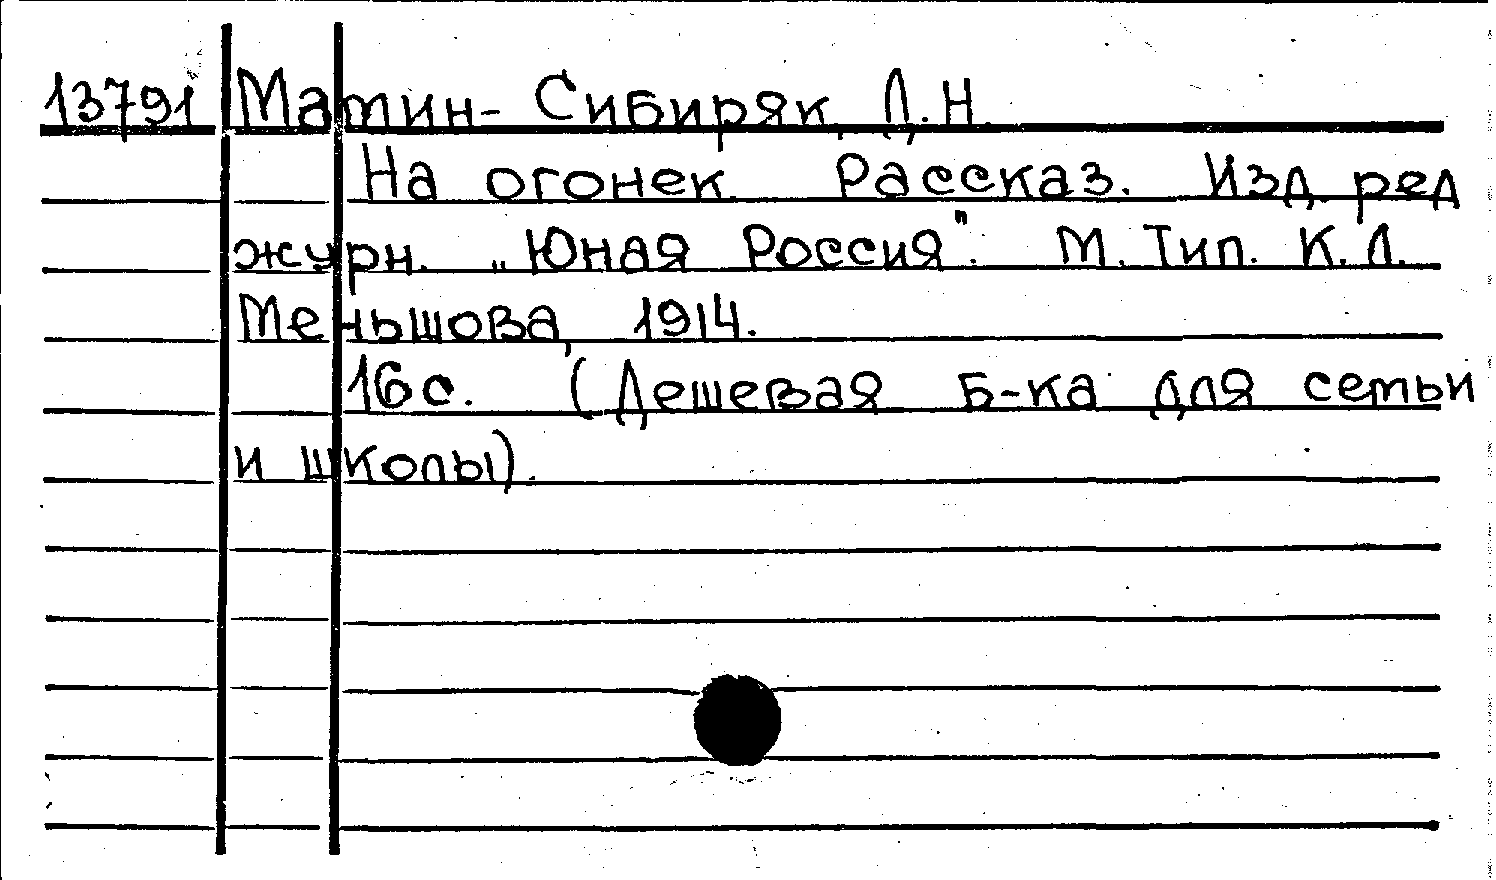 13791 Мамин-Сибиряк, Д.Н.
На огонек. Рассказ. Изд. ред
журн. „Юная Россия". М. Тип. К. Л.
Меньшова, 1914.
16 с. (Дешевая Б-ка для семьи
и школы).